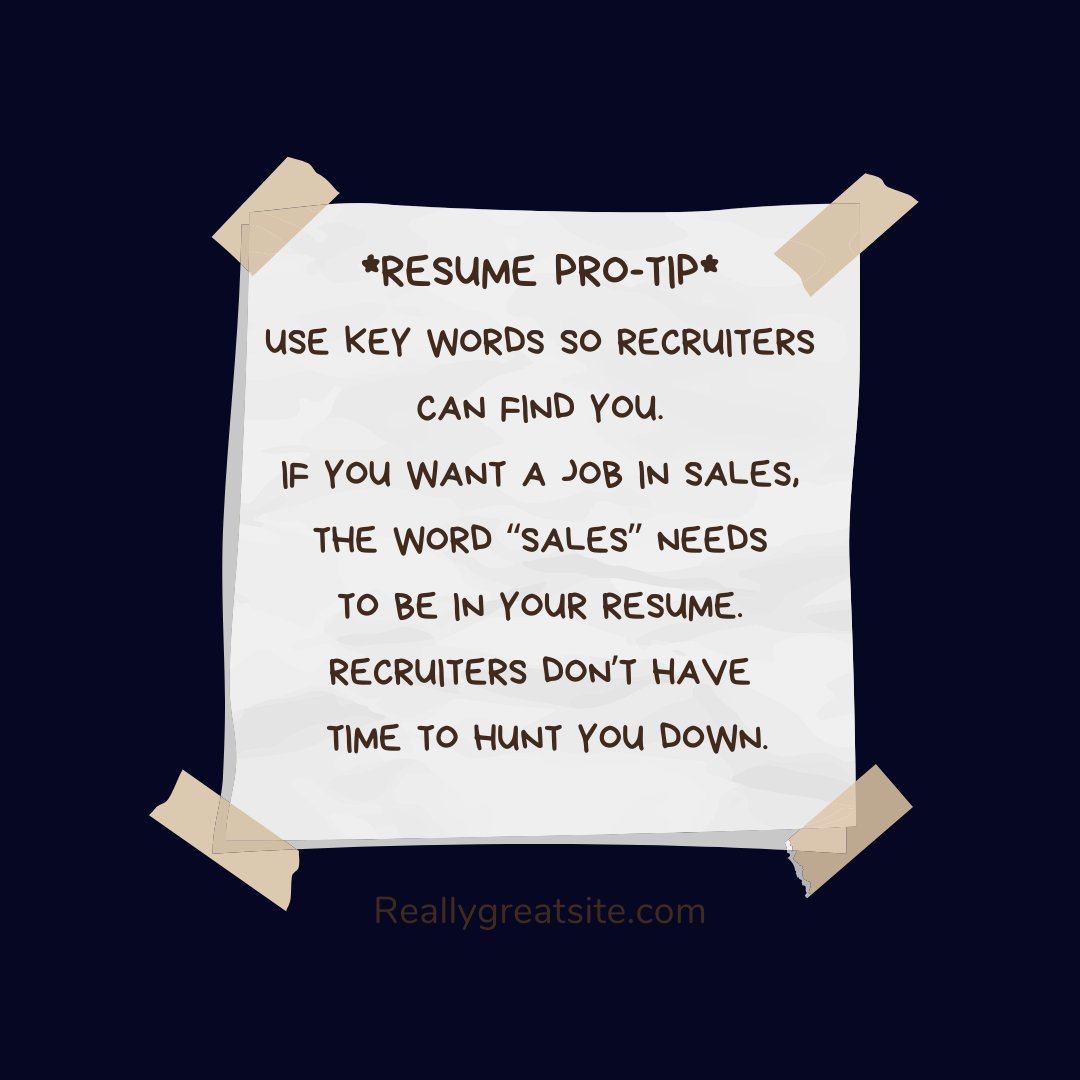 *RESUME PRO-TIP*
USE KEY WORDS SO RECRUITERS
CAN FIND YOU.
IF YOU WANT A JOB IN SALES,
THE WORD “SALES” NEEDS
TO BE IN YOUR RESUME.
RECRUITERS DON'T HAVE
TIME TO HUNT YOU DOWN.
Reallygreatsite.com